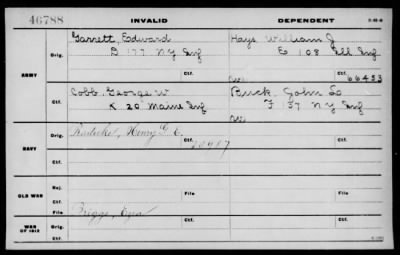 46788 INVALID DEPENDENT
Garrett, Edward Hays William J
Orig. D 177 NY Inf Orig. E 108 Ill Inf
ARMY Ctf. 66433
Cobb, George W Buck, John
Ctf. K 20 Maine Inf Ctf. F 157 NY Inf
Orig. Henry Orig.
NAVY
Ctf. Ctf.
OLD WAR Rej. File File
Ctf.
Briggs, Ezra
WAR OF 1812 File Orig. Ctf. Orig. Ctf.